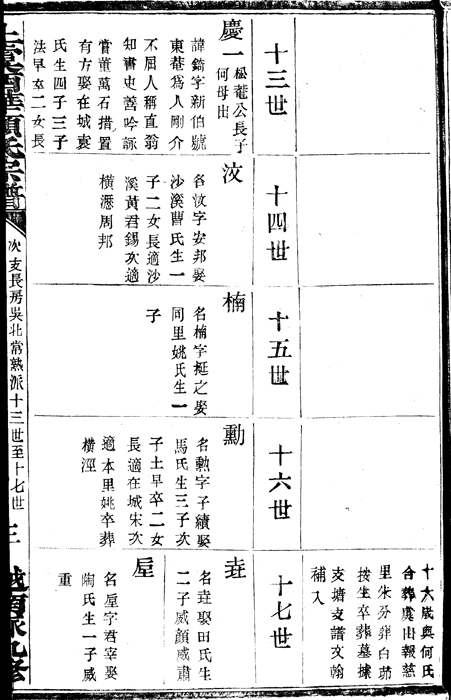 十六歲與何氏
合葬虞山報慈
里朱芬葬白茆
挾生卒葬墓據
支塘支譜文翰
補入
十三世
慶一
松菴公長子
何母出
諱錡字新伯號
東菴爲人剛介
不屈人稱直翁
知書史善吟詠
嘗董萬石措置
有方娶在城袁
氏生四子三子
法早卒二女長
十四世
汶
名汶字安邦娶
沙溪曹氏生一
子二女長適沙
溪黃君錫次適
橫瀝周邦
十五世
楠
名楠字梃之娶
同里姚氏生一
子
十六世
勳
名勳字子績娶
馬氏生三子次
子土早卒二女
長適在城朱次
適本里姚卒葬
橫涇
十七世
垚
名垚娶田氏生
二子威顔威肅
垕
名垕字君宰娶
陶氏生一子威
重
次支長房吳北常熟派十三世至十七世
三